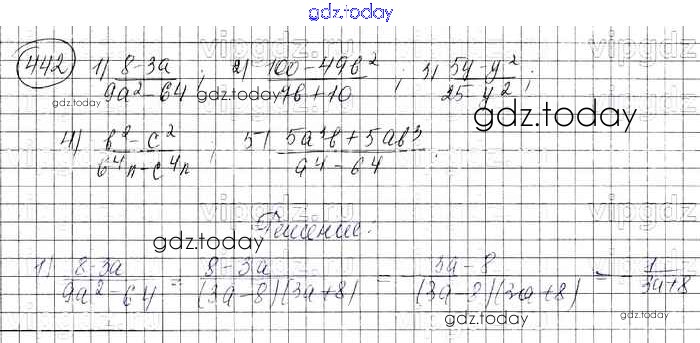 gdz.today
442 1) (8-3a)/(9a²-64); 2) (100-49b²)/(7b+10); 3) (5y-y²)/(25-y²);
gdz.today
gdz.today
4) (b²-c²)/(b⁴n-c⁴n); 5) (5a³b+5ab³)/(a⁴-b⁴).
Решение:
gdz.today
1) (8-3a)/(9a²-64) = (8-3a)/((3a-8)(3a+8)) = -(3a-8)/((3a-8)(3a+8)) = -1/(3a+8)
gdz.today
gdz.today